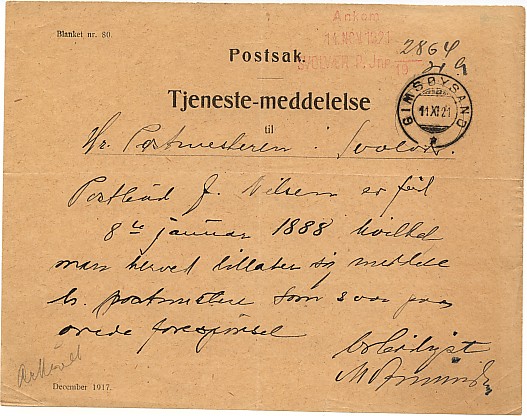 Blanket nr. 80.
Ankom
11 NOV 1921
SVOLVÆR P. Jnr.
2864
Postsak.
Tjeneste-meddelelse
til
GIMSØYSAND
11 XI 21
Hr. Postmesteren. Svolvær.
Postbud J. Nilsen er født
8de januar 1888 hvilket
man herved tillater sig meddele
hr. postmester som svar paa
ærede forespørsel
Ærbødigst
Arkivet
December 1917.